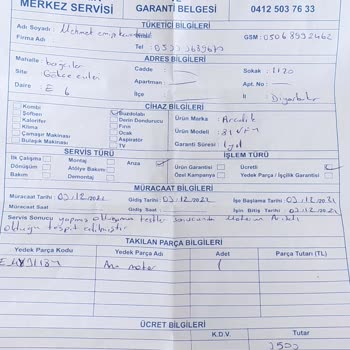 MERKEZ SERVİSİ
GARANTİ BELGESİ
0412 503 76 33
TÜKETİCİ BİLGİLERİ
Adı Soyadı : Mehmet
GSM :
Firma Adı
Tel :
ADRES BİLGİLERİ
Mahalle : bağcılar
Cadde :
Sokak : 1120
Site :
Apartman :
Apt. No :
Daire : E 6
İlçe :
İl : Diyarbakır
CİHAZ BİLGİLERİ
Kombi
Buzdolabı
Ürün Marka : Arçelik
Şofben
Derin Dondurucu
Kalorifer
Fırın
Ürün Modeli :
Klima
Ocak
Çamaşır Makinası
Aspiratör
Garanti Süresi : 1 yıl
Bulaşık Makinası
TV
SERVİS TÜRÜ
İŞLEM TÜRÜ
İlk Çalışma
Montaj
Arıza
Ürün Garantisi
Ücretli
Dönüşüm
Atölye Bakımı
Özel Kampanya
Yedek Parça / İşçilik Garantisi
Bakım
Demontaj
MÜRACAAT BİLGİLERİ
Müracaat Tarihi : 03.12.2022
Gidiş Tarihi : 03.12.2022
İşe Başlama Tarihi : 03.12.2022
Müracaat Saat
Gidiş Saat
İşin Bitiş Tarihi : 03.12.2022
Servis Sonucu
olduğu tespit edilmiştir
TAKILAN PARÇA BİLGİLERİ
Yedek Parça Kodu
Yedek Parça Adı
Adet
Parça Tutarı (TL)
Ana motor
1
ÜCRET BİLGİLERİ
K.D.V.
Tutar
2500